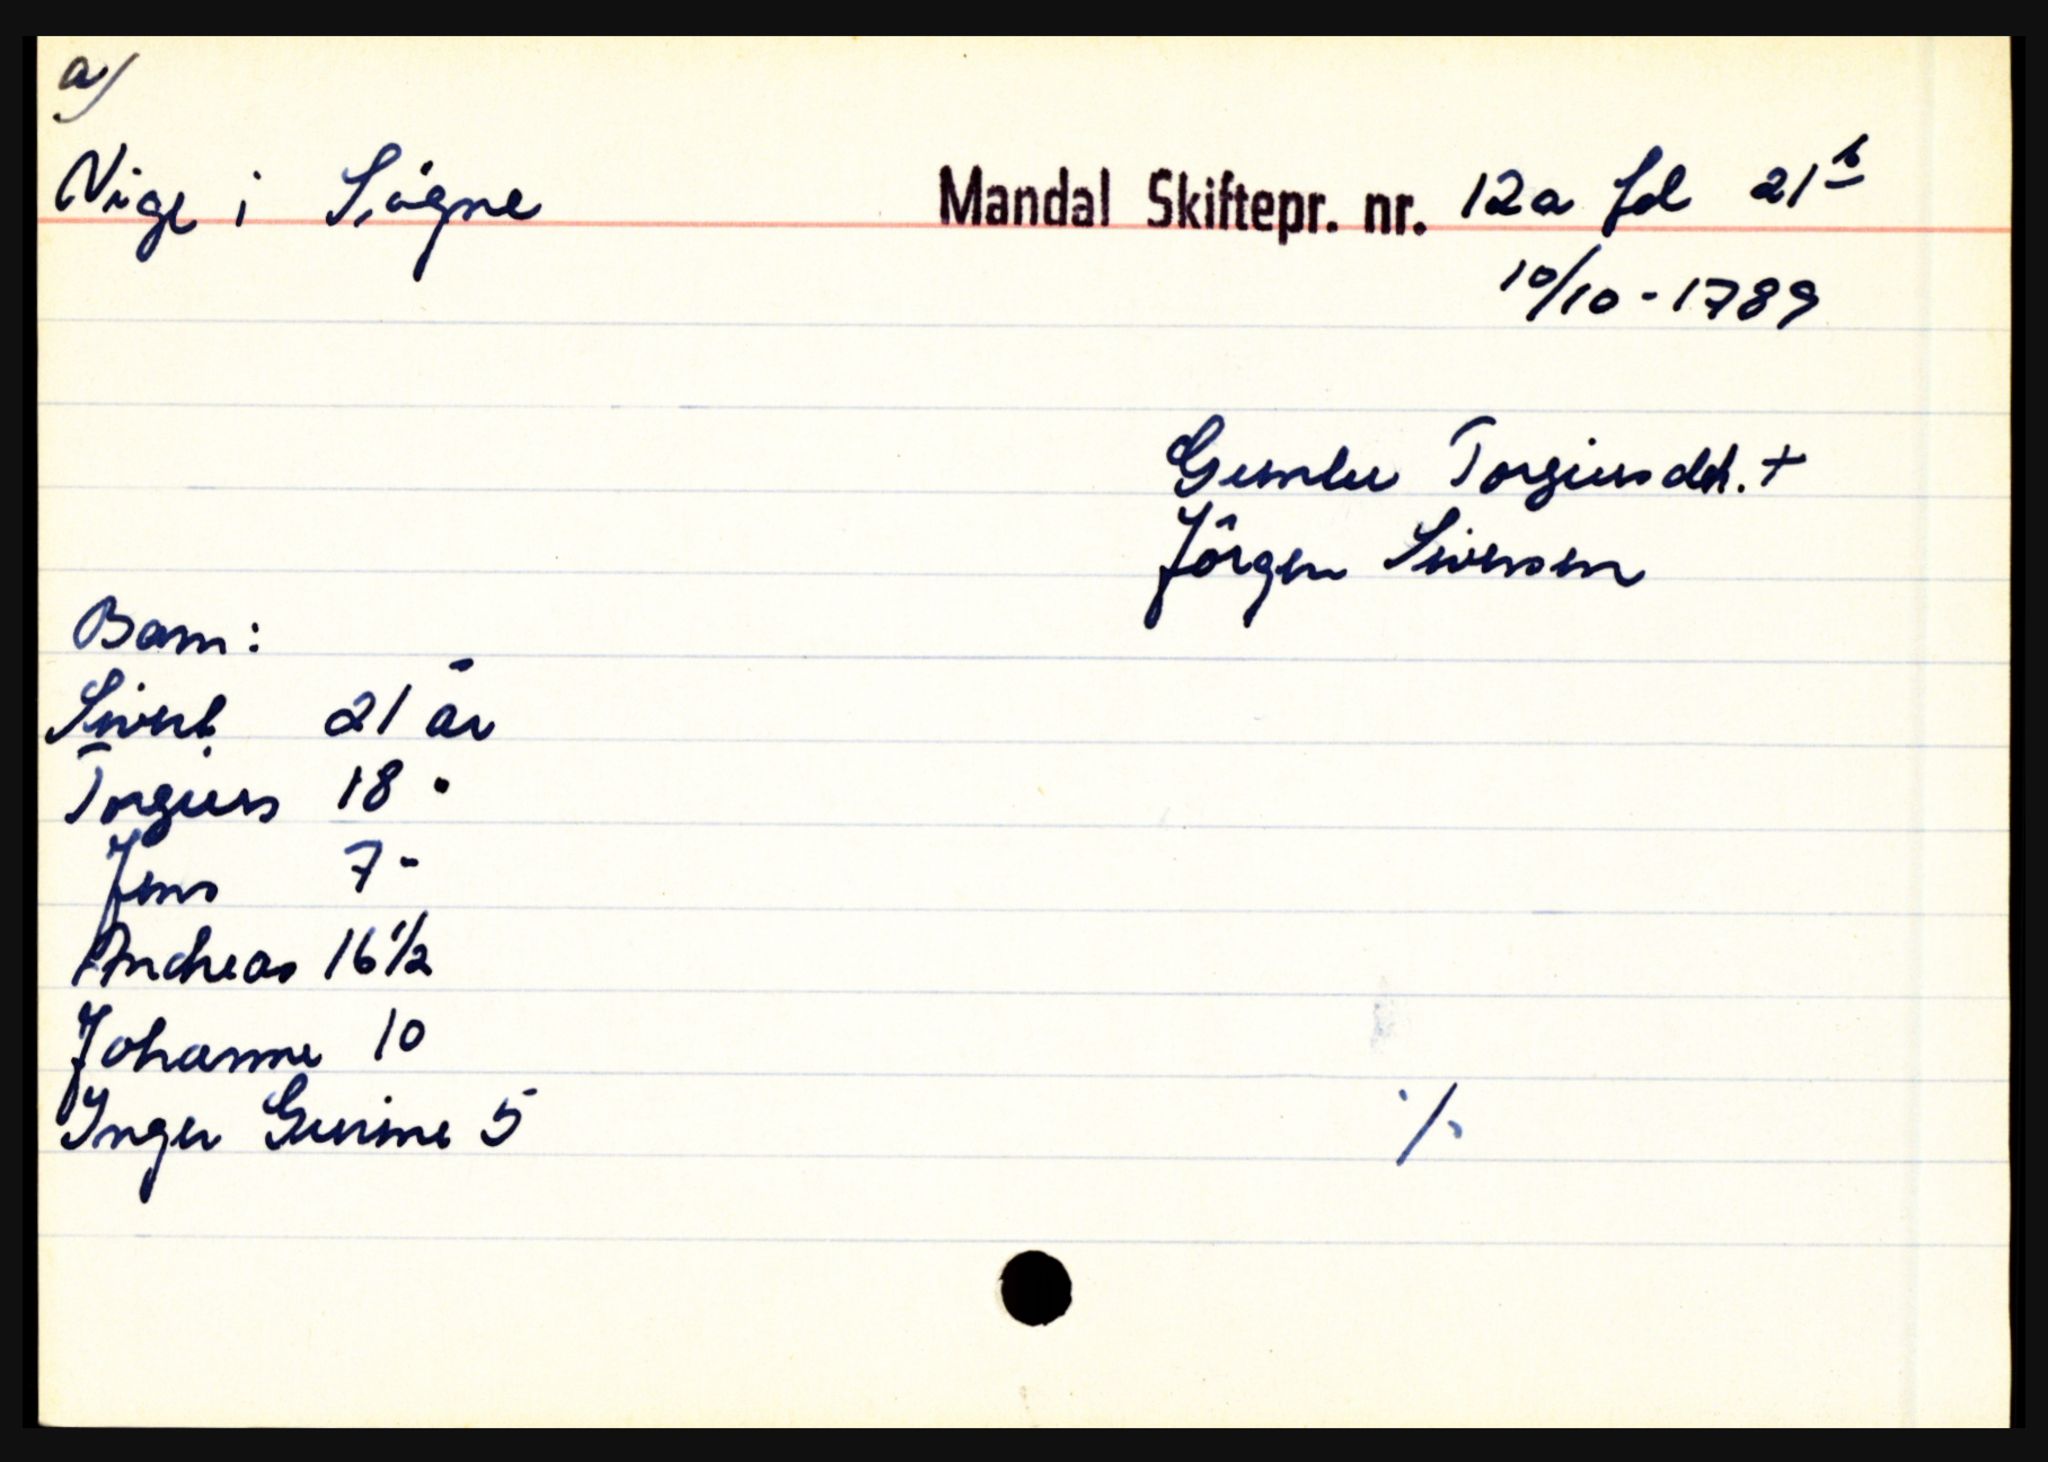 a)
Nige i Søgne Mandal Skiftepr. nr. 12a fol 21b
10/10-1789
Gunlu Torgiusdtr. +
Jörgen Siversen
Barn:
Sivert 21 år
Torgius 18 "
Jens 7 "
Andreas 16 1/2
Johanne 10
Inger Gurine 5
./.